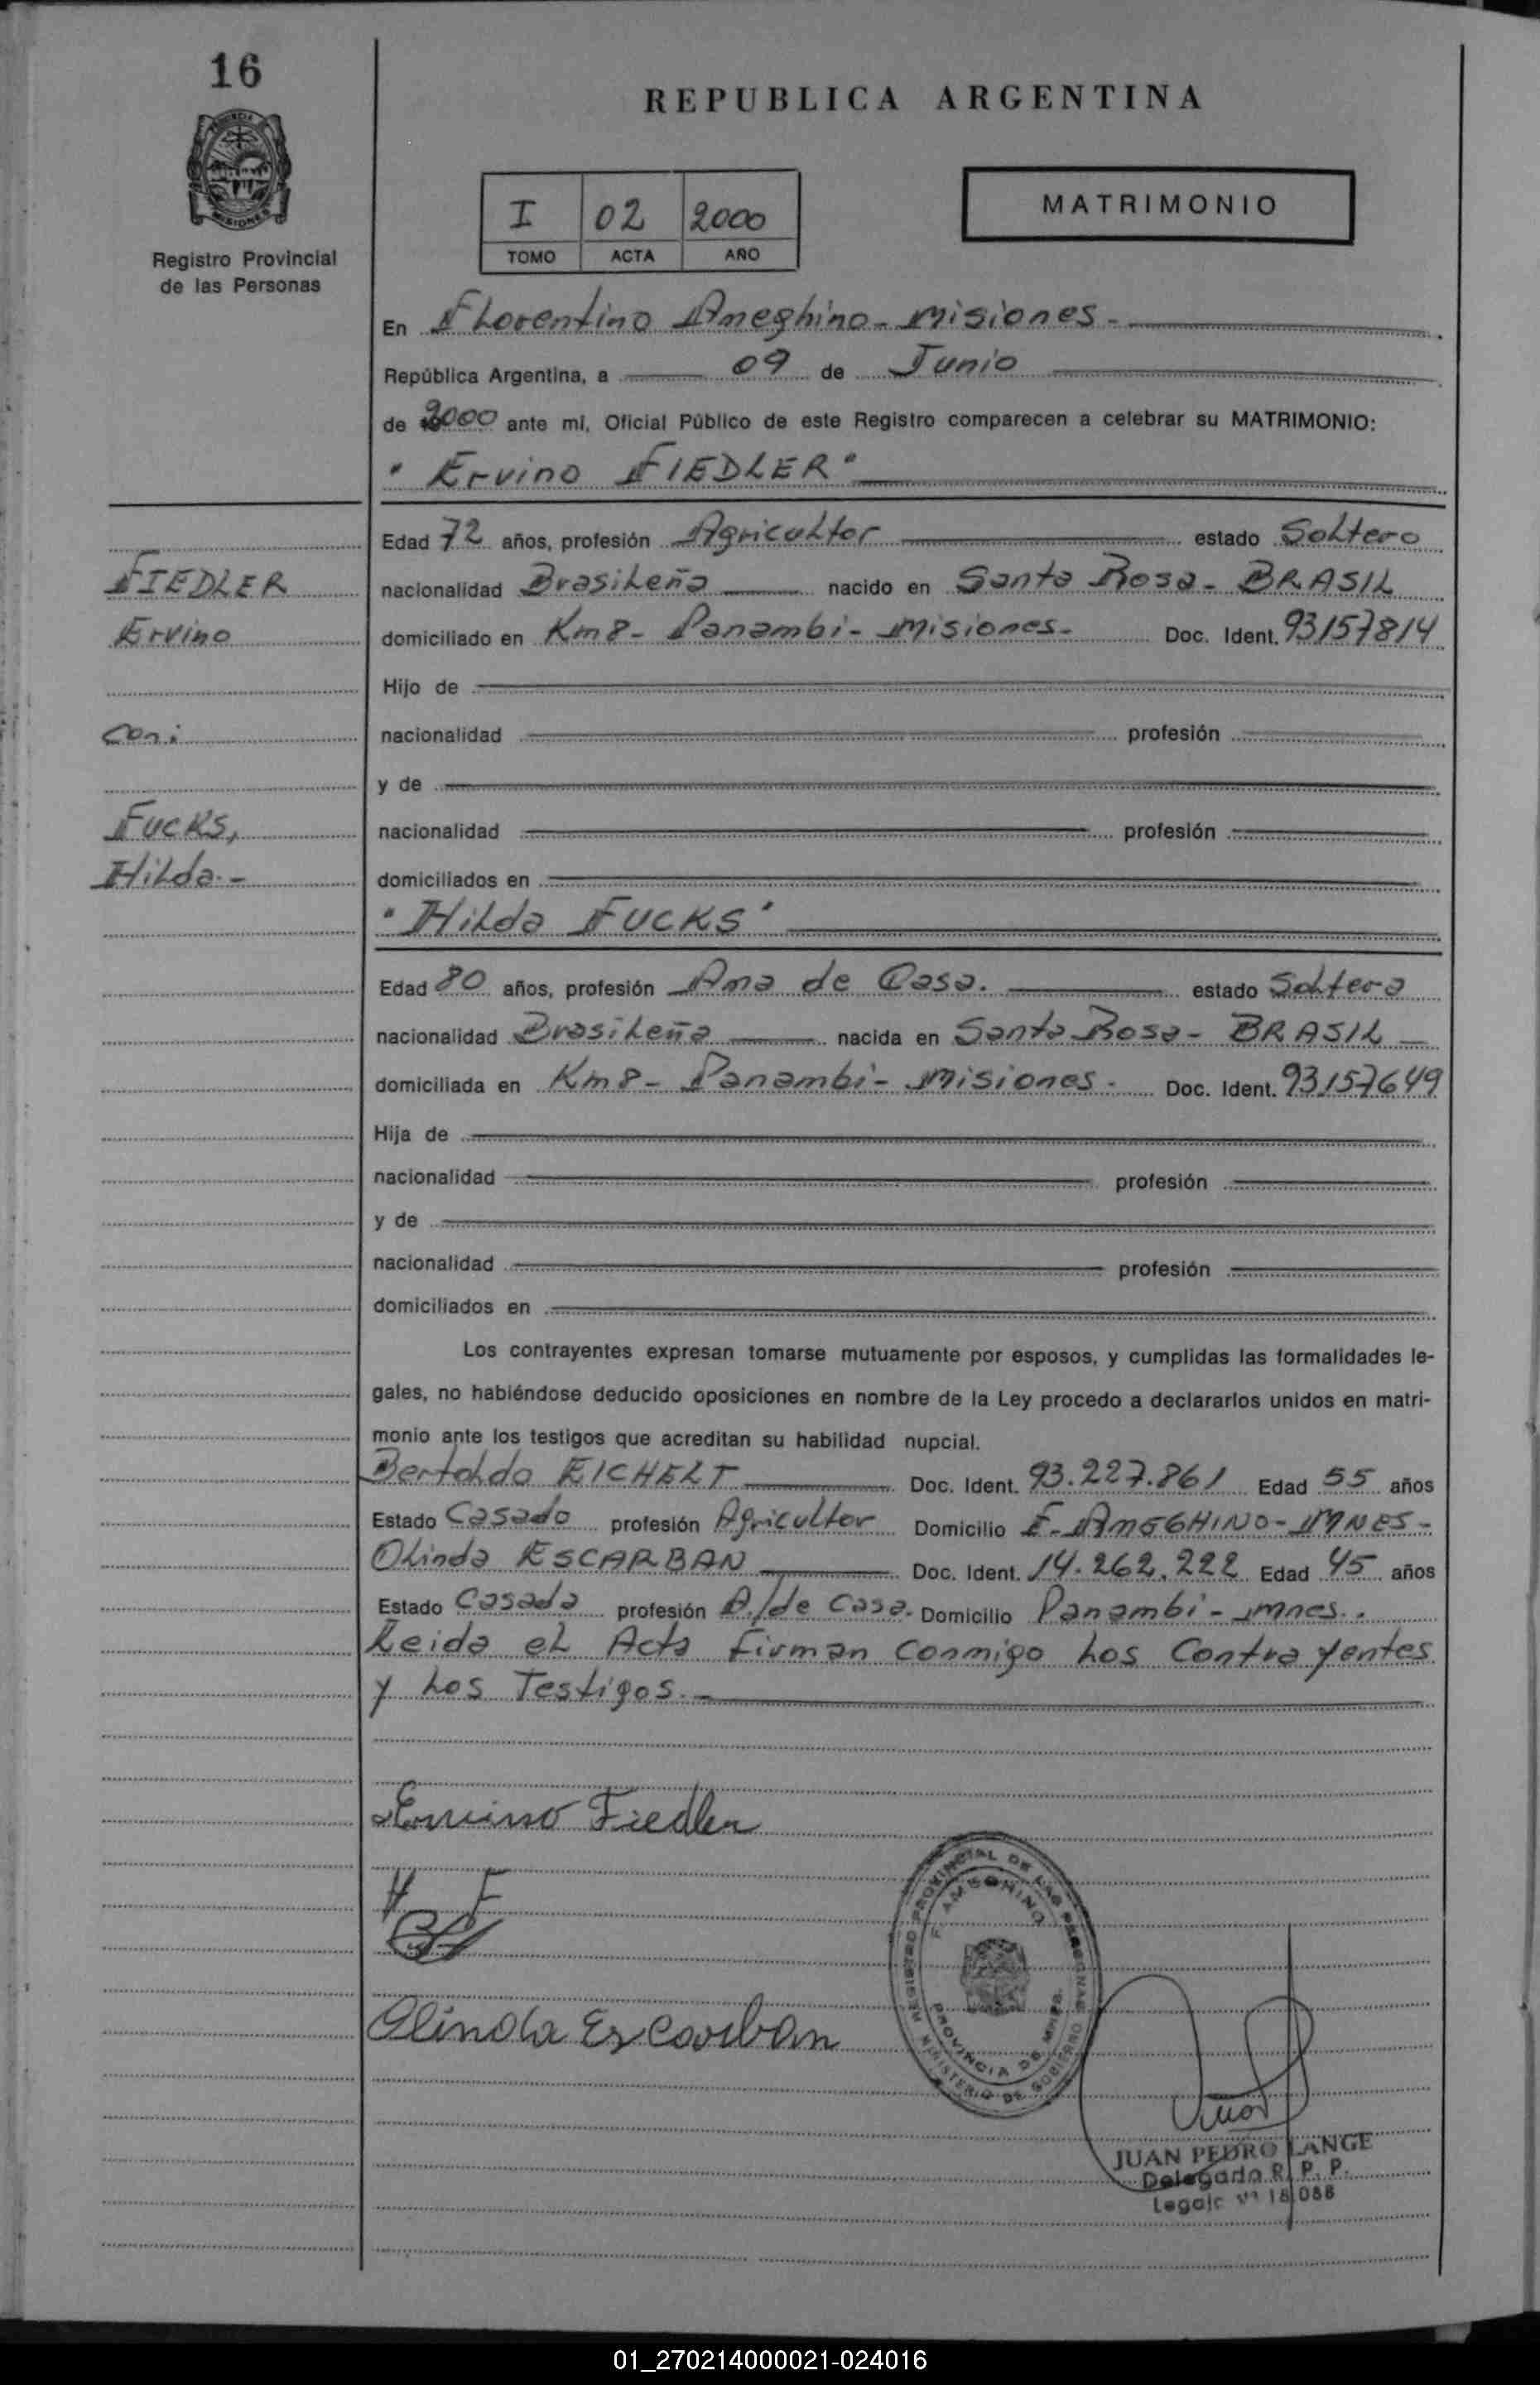 16
REPUBLICA ARGENTINA
MISIONES
Registro Provincial
de las Personas
I 02 2000
TOMO ACTA AÑO
MATRIMONIO
En Florentino Ameghino - Misiones -
República Argentina, a 09 de Junio
de 2000 ante mi, Oficial Público de este Registro comparecen a celebrar su MATRIMONIO:
" Ervino FIEDLER "
FIEDLER
Ervino
Con:
Fucks,
Hilda.-
Edad 72 años, profesión Agricultor estado Soltero
nacionalidad Brasileña nacido en Santa Rosa - BRASIL
domiciliado en Km 8 - Panambi - Misiones - Doc. Ident. 93157814
Hijo de
nacionalidad profesión
y de
nacionalidad profesión
domiciliados en
" Hilda FUCKS "
Edad 80 años, profesión Ama de Casa. estado Soltera
nacionalidad Brasileña nacida en Santa Rosa - BRASIL -
domiciliada en Km 8 - Panambi - Misiones - Doc. Ident. 93157649
Hija de
nacionalidad profesión
y de
nacionalidad profesión
domiciliados en
Los contrayentes expresan tomarse mutuamente por esposos, y cumplidas las formalidades le-
gales, no habiéndose deducido oposiciones en nombre de la Ley procedo a declararlos unidos en matri-
monio ante los testigos que acreditan su habilidad nupcial.
Bertoldo EICHELT Doc. Ident. 93.227.861 Edad 55 años
Estado Casado profesión Agricultor Domicilio F. AMEGHINO - MNES -
Olinda ESCARBAN Doc. Ident. 14.262.222 Edad 45 años
Estado Casada profesión A/de Casa. Domicilio Panambi - Mnes.
Leida el Acta firman conmigo los Contrayentes
y los Testigos. -
Ervino Fiedler
H F
Olinda Escarban
REGISTRO PROVINCIAL DE LAS PERSONAS
F. AMEGHINO
PROVINCIA DE MNES.
MINISTERIO DE GOBIERNO
JUAN PEDRO LANGE
Delegado R. P. P.
Legajo
01_270214000021-024016